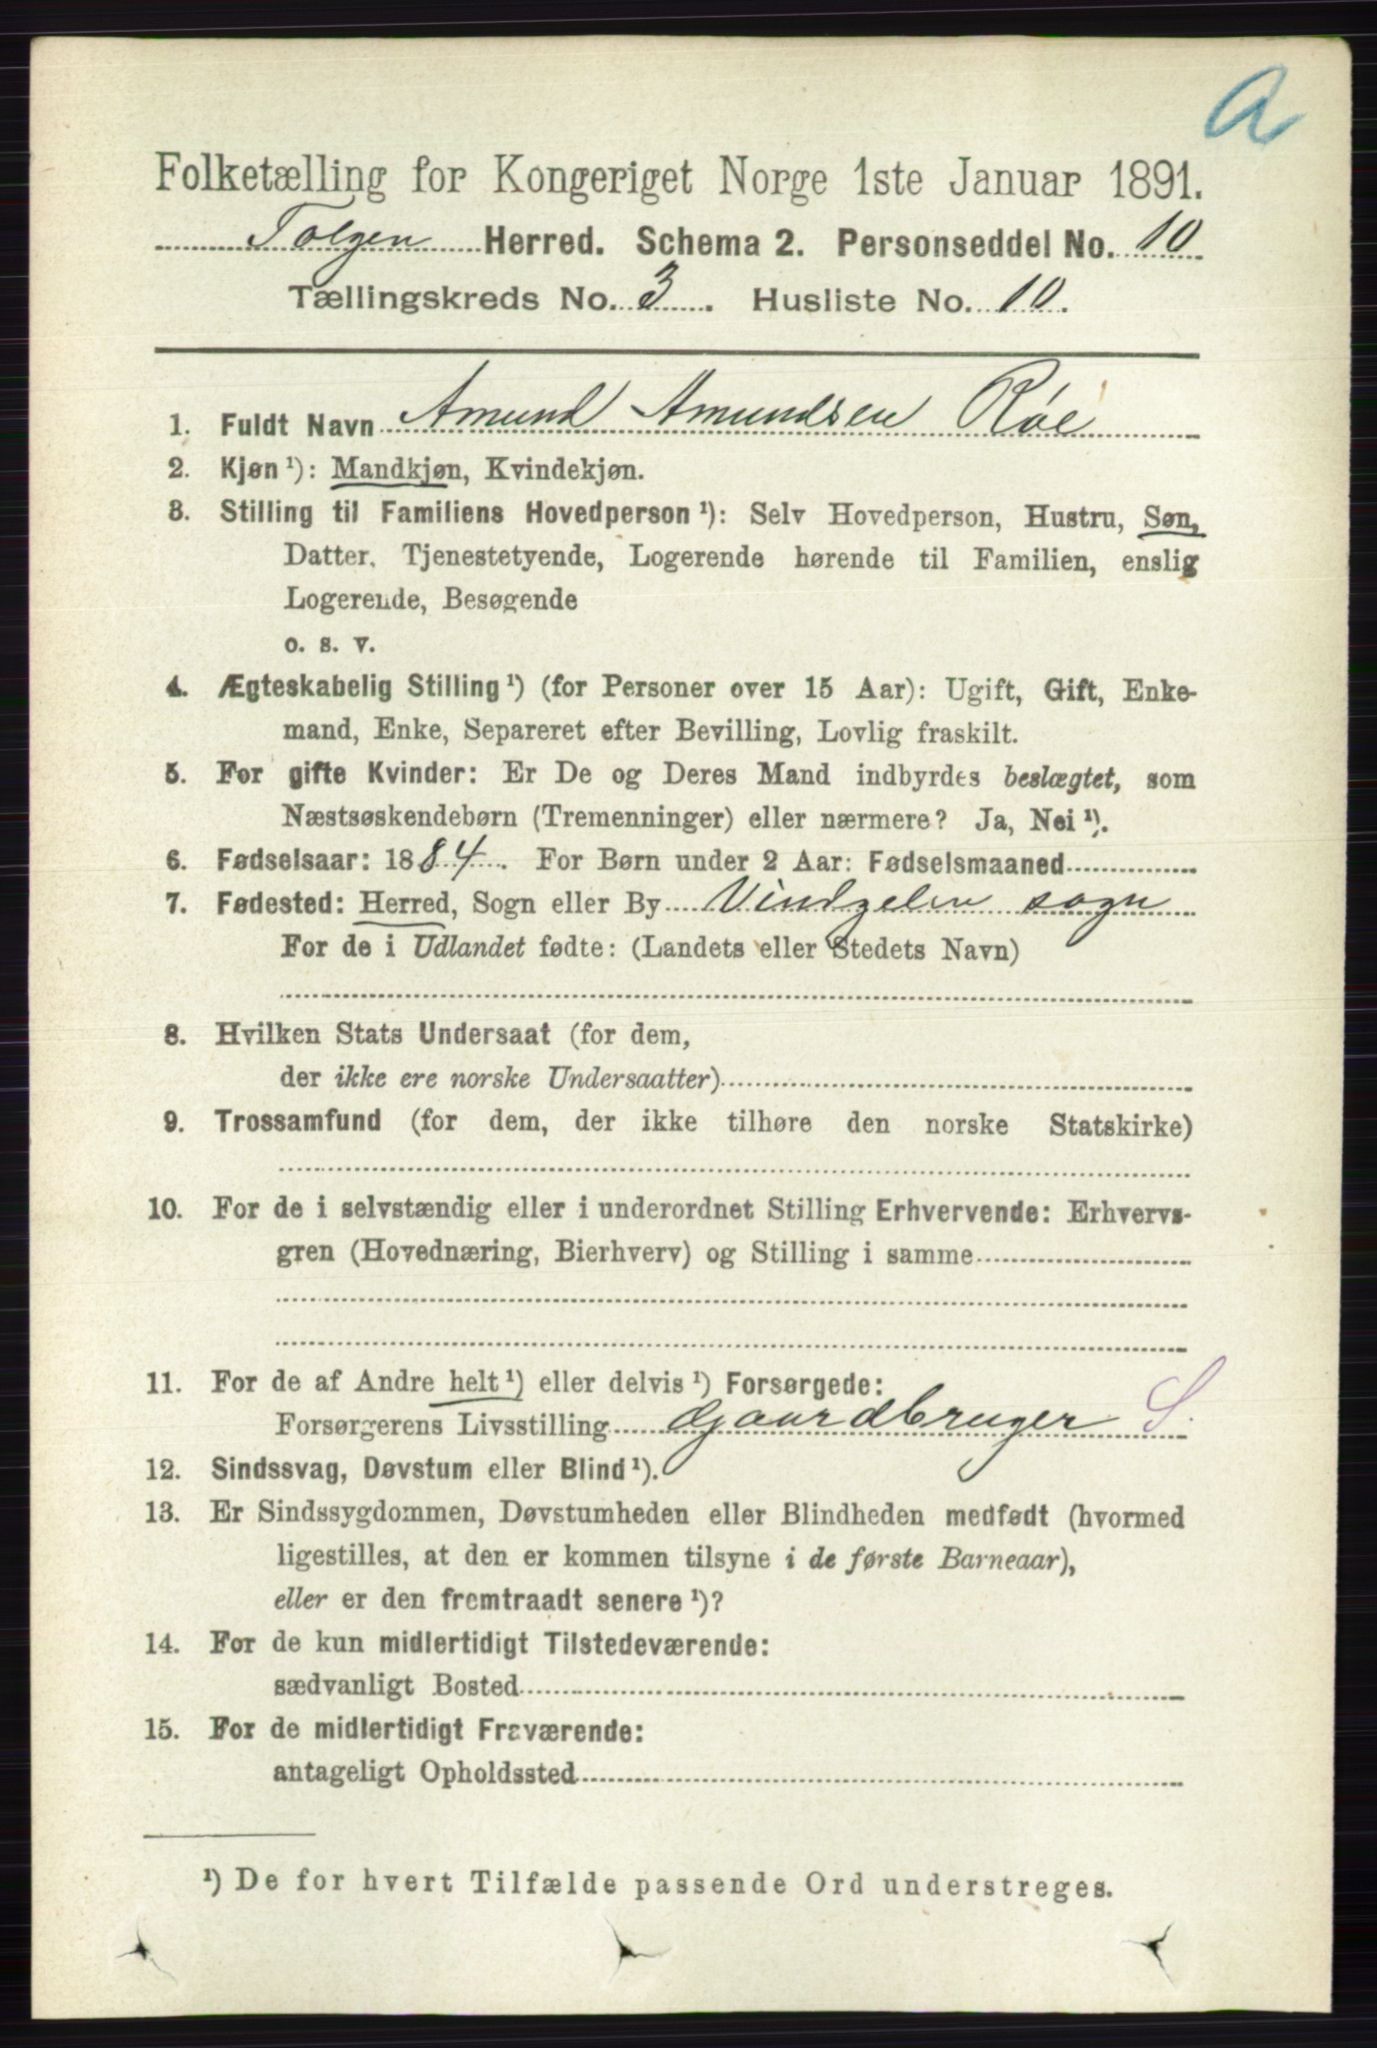 A
Folketælling for Kongeriget Norge 1ste Januar 1891.
Tolgen Herred. Schema 2. Personseddel No. 10
Tællingskreds No. 3. Husliste No. 10.
1. Fuldt Navn Amund Amundsen Røe
2. Kjøn ¹): Mandkjøn, Kvindekjøn.
3. Stilling til Familiens Hovedperson ¹): Selv Hovedperson, Hustru, Søn,
Datter, Tjenestetyende, Logerende hørende til Familien, enslig
Logerende, Besøgende
o. s. v.
4. Ægteskabelig Stilling ¹) (for Personer over 15 Aar): Ugift, Gift, Enke-
mand, Enke, Separeret efter Bevilling, Lovlig fraskilt.
5. For gifte Kvinder: Er De og Deres Mand indbyrdes beslægtet, som
Næstsøskendebørn (Tremenninger) eller nærmere? Ja, Nei ¹).
6. Fødselsaar: 1884. For Børn under 2 Aar: Fødselsmaaned
7. Fødested: Herred, Sogn eller By Vindgelen sogn
For de i Udlandet fødte: (Landets eller Stedets Navn)
8. Hvilken Stats Undersaat (for dem,
der ikke ere norske Undersaatter)
9. Trossamfund (for dem, der ikke tilhøre den norske Statskirke)
10. For de i selvstændig eller i underordnet Stilling Erhvervende: Erhvervs-
gren (Hovednæring, Bierhverv) og Stilling i samme
11. For de af Andre helt ¹) eller delvis ¹) Forsørgede:
Forsørgerens Livsstilling Gaardbruger S.
12. Sindssvag, Døvstum eller Blind ¹).
13. Er Sindssygdommen, Døvstumheden eller Blindheden medfødt (hvormed
ligestilles, at den er kommen tilsyne i de første Barneaar),
eller er den fremtraadt senere ¹)?
14. For de kun midlertidigt Tilstedeværende:
sædvanligt Bosted
15. For de midlertidigt Fraværende:
antageligt Opholdssted
¹) De for hvert Tilfælde passende Ord understreges.